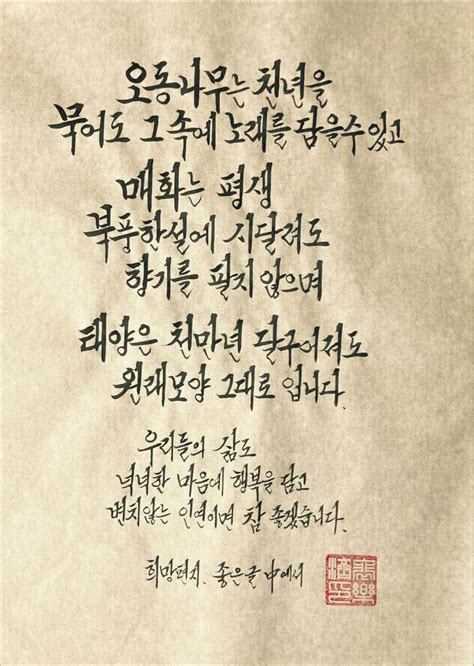 오동나무는 천년을
묵어도 그 속에 노래를 담을수 있고
매화는 평생
북풍한설에 시달려도
향기를 팔지 않으며
태양은 천만년 달구어져도
원래모양 그대로 입니다.
우리들의 삶도
넉넉한 마음에 행복을 담고
변치않는 인연이면 참 좋겠습니다.
희망편지. 좋은글 中에서